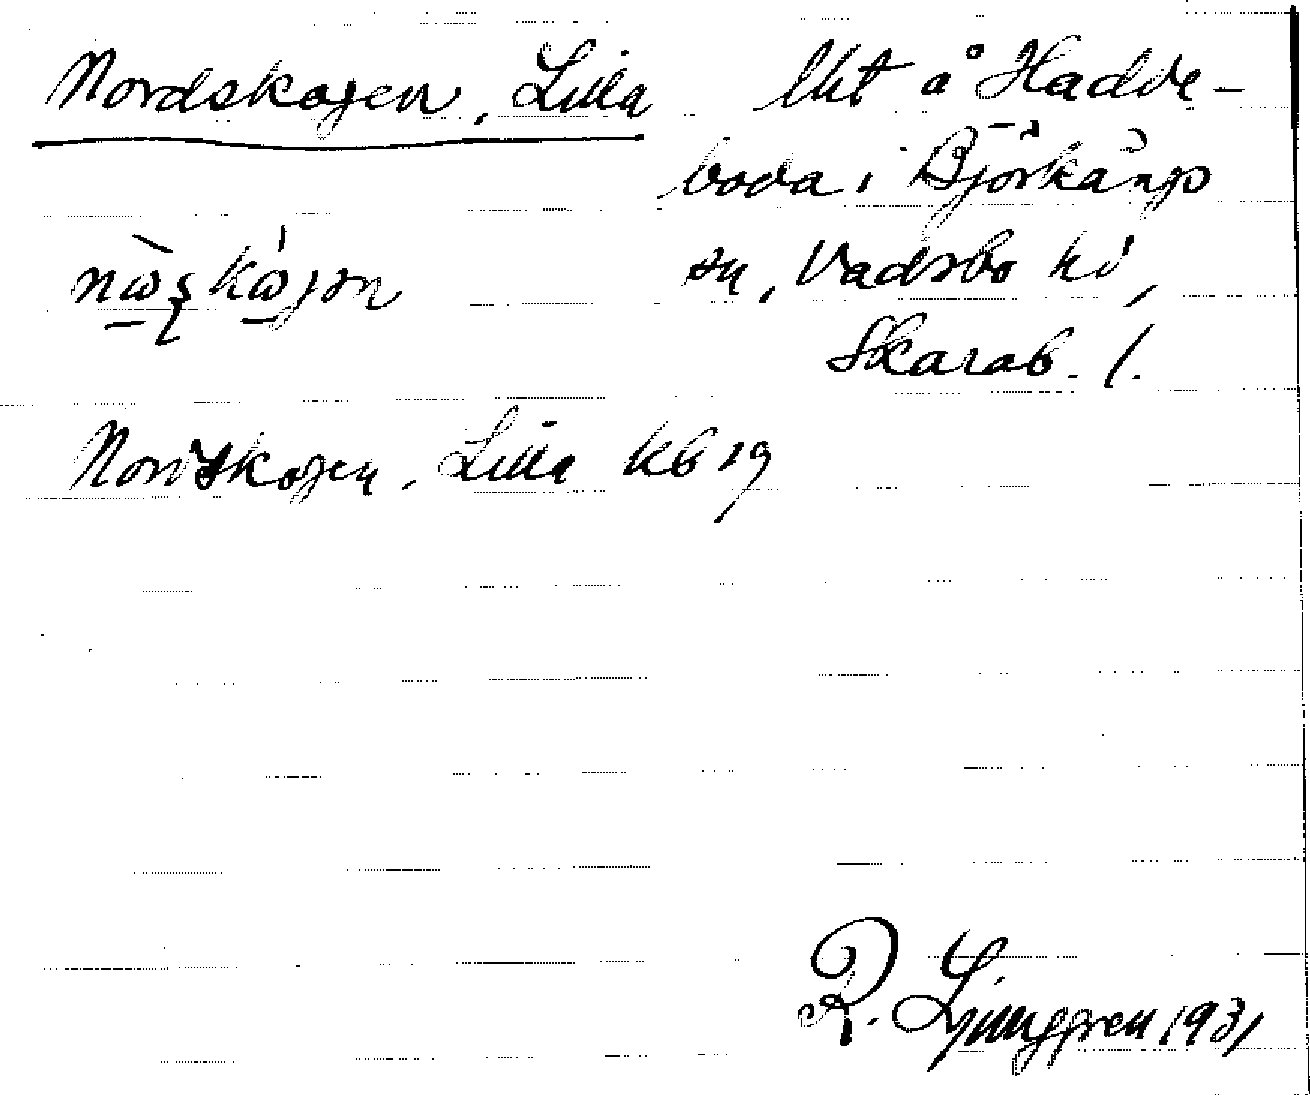 Nordskogen, Lilla
lht å Hadde-
boda i Björkängs
sn, Vadsbo hd,
Skarab. l.
Nordskogen, Lilla kb 19
R. Ljunggren 1931